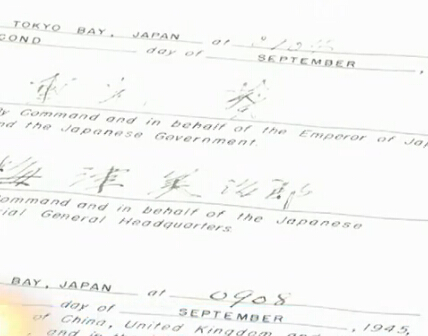 TOKYO BAY, JAPAN at
COND day of SEPTEMBER ,
重光 葵
y Command and in behalf of the Emperor of Jap
nd the Japanese Government.
梅津美治郎
ommand and in behalf of the Japanese
rial General Headquarters
BAY, JAPAN at 0908
day of SEPTEMBER , 1945,
of China, United Kingdom and